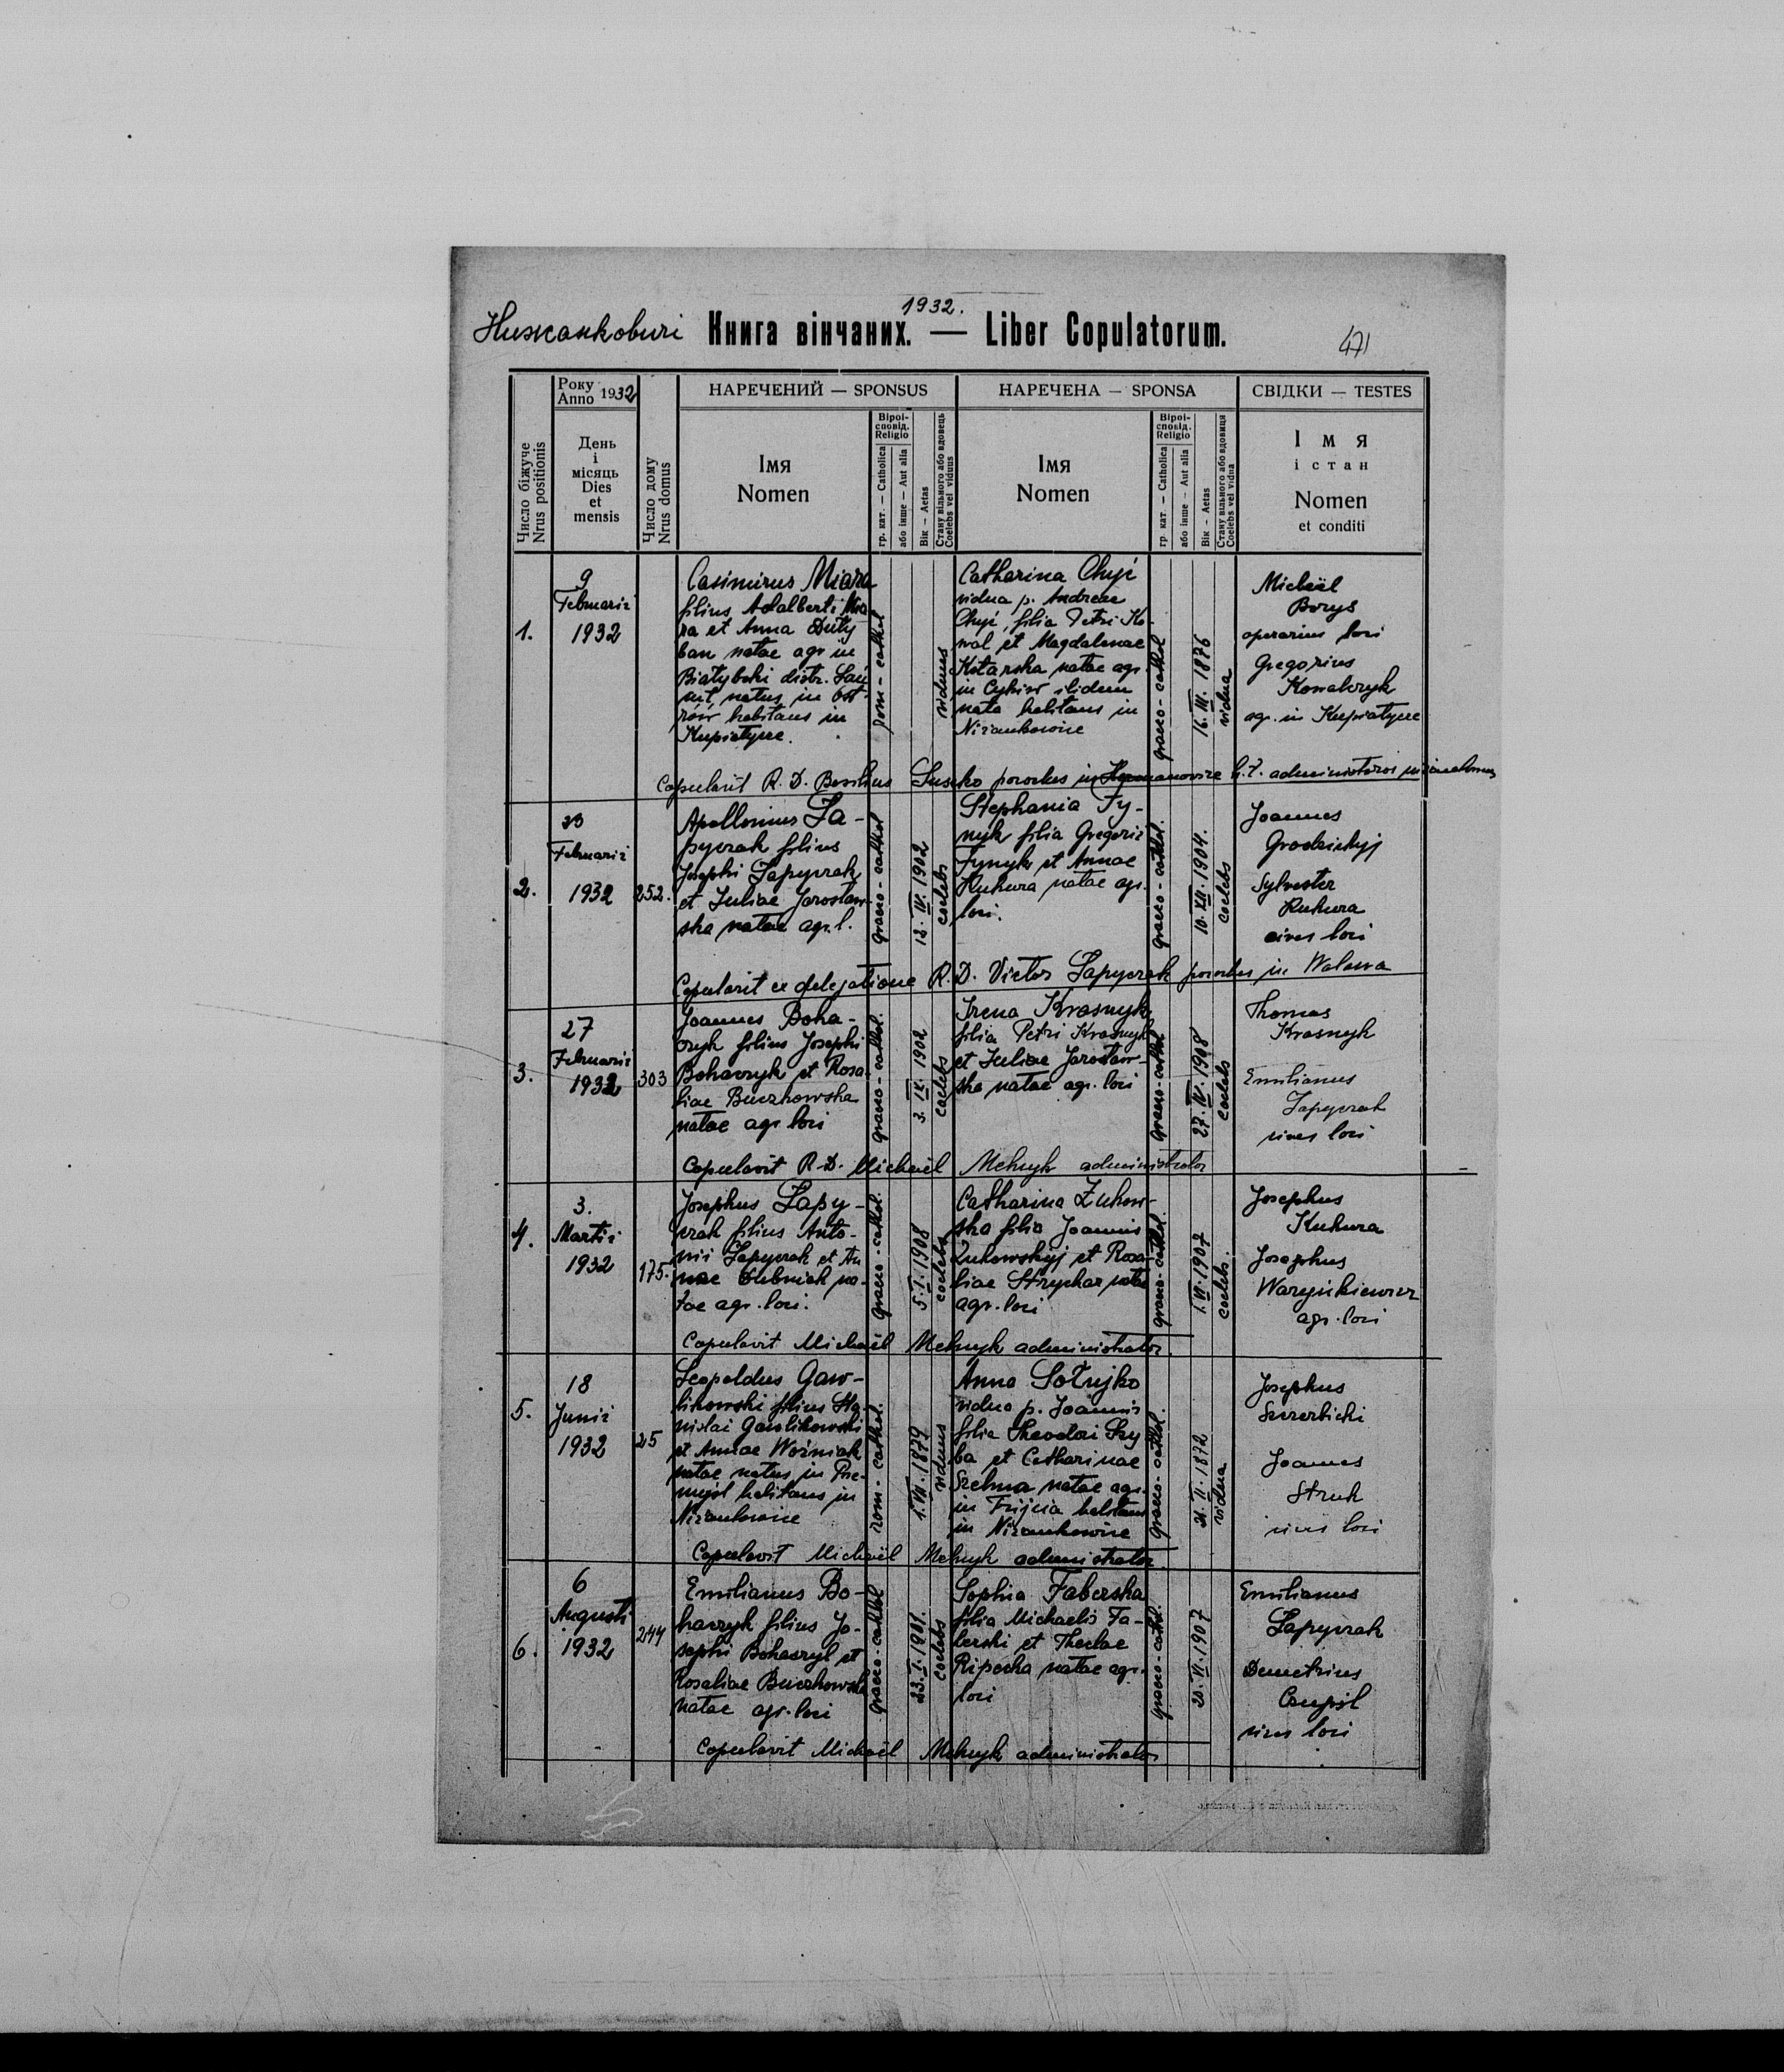 1932.
Нижанковичі Книга вінчаних. — Liber Copulatorum.
471
Число біжуче
Nrus positionis
Року
Anno 1932
День
і
місяць
Dies
et
mensis
Число дому
Nrus domus
НАРЕЧЕНИЙ — SPONSUS
Імя
Nomen
Віроі-
сповід.
Religio
гр. кат. — Catholica
або інше — Aut alia
Вік — Aetas
Стану вільного або вдовець
Coelebs vel viduus
НАРЕЧЕНА — SPONSA
Імя
Nomen
Віроі-
сповід.
Religio
гр. кат. — Catholica
або інше — Aut alia
Вік — Aetas
Стану вільного або вдовиця
Coelebs vel vidua
СВІДКИ — TESTES
Імя
і стан
Nomen
et conditi
1.
9
Februarii
1932
Casimirus Miara
filius Adalberti Mia-
ra et Anna Duty
ban natae agr in
Białyboki distr. Łań
cut, natus in Ost-
rów habitans in
Kupiatycze.
rom-cathol
viduus
Catharina
vidua p. Andreae
filia Petri Ko-
wal et Magdalenae
Kotarska natae agr.
in ibidem
nata habitans in
Nizankowice
graeco-cathol
16. III. 1876
vidua
Michaël
Borys
operarius loci
Gregorius
Kowalczyk
agr. in Kupiatycze
Copulavit R. D. Basilius parochus in h. t. administrator
2.
Februarii
1932
252.
Apollonius Ła-
pyczak filius
Josephi Łapyczak
et Juliae Jarosław-
ska natae agr. l.
graeco-cathol
12. IV. 1902
coelebs
Stephania Ty-
nyk filia Gregorii
Tynyk et Annae
Kukura natae agr.
loci.
graeco-cathol.
10. XII. 1904.
coelebs
Joannes
Grodzickyj
Sylvester
Kukura
cives loci
Copulavit ex delegatione R. D. Victor Łapyczak parochus in Walawa
3.
27
Februarii
1932
303
Joannes Boha-
czyk filius Josephi
Bohaczyk et Rosa-
liae Buczkowska
natae agr loci
graeco-cathol.
3. IX. 1902
coelebs
Irena Krasnyk
filia Petri Krasnyk
et Juliae Jarosław-
ska natae agr. loci
graeco-cathol
27. IV. 1908
coelebs
Thomas
Krasnyk
Emilianus
Łapyczak
cives loci
Copulavit R. D. Michaël Melnyk administrator
4.
3.
Martii
1932
175.
Josephus Łapy-
czak filius Anto-
nii Łapyczak et An
nae Dubniak na-
tae agr. loci.
graeco-cathol.
5. I. 1908
coelebs
Catharina Żukow-
ska filia Joannis
Żukowskyj et Rosa-
liae Strychar natae
agr. loci
graeco-cathol.
1. VI. 1907
coelebs.
Josephus
Kukura
Josephus
agr. loci
Copulavit Michaël Melnyk administrator.
5.
18
Junii
1932
25
Leopoldus Gaw-
likowski filius Sta-
nislai Gawlikowski
et Annae Woźniak
natae natus in Pre-
mysl habitans in
Nizankowice
rom-cathol.
1. VII. 1879
viduus
Anna Sołujko
vidua p. Joannis
filia Theodori Szy
ba et Catharinae
Szelma natae agr.
in Trijcia habitans
in Nizankowice
graeco-cathol.
21. II. 1872
vidua
Josephus
Szczerbicki
Joannes
Struk
cives loci
Copulavit Michaël Melnyk administrator
6.
6
Augusti
1932
244
Emilianus Bo-
haczyk filius Jo-
sephi Bohaczyk et
Rosaliae Buczkowska
natae agr. loci
graeco-cathol
23. I. 1901.
coelebs
Sophia Faberska
filia Michaelis Fa-
berski et Theclae
Ripecka natae agr.
loci
graeco-cathol.
20. VI. 1907
Emilianus
Łapyczak
Demetrius
cives loci
Copulavit Michaël Melnyk administrator